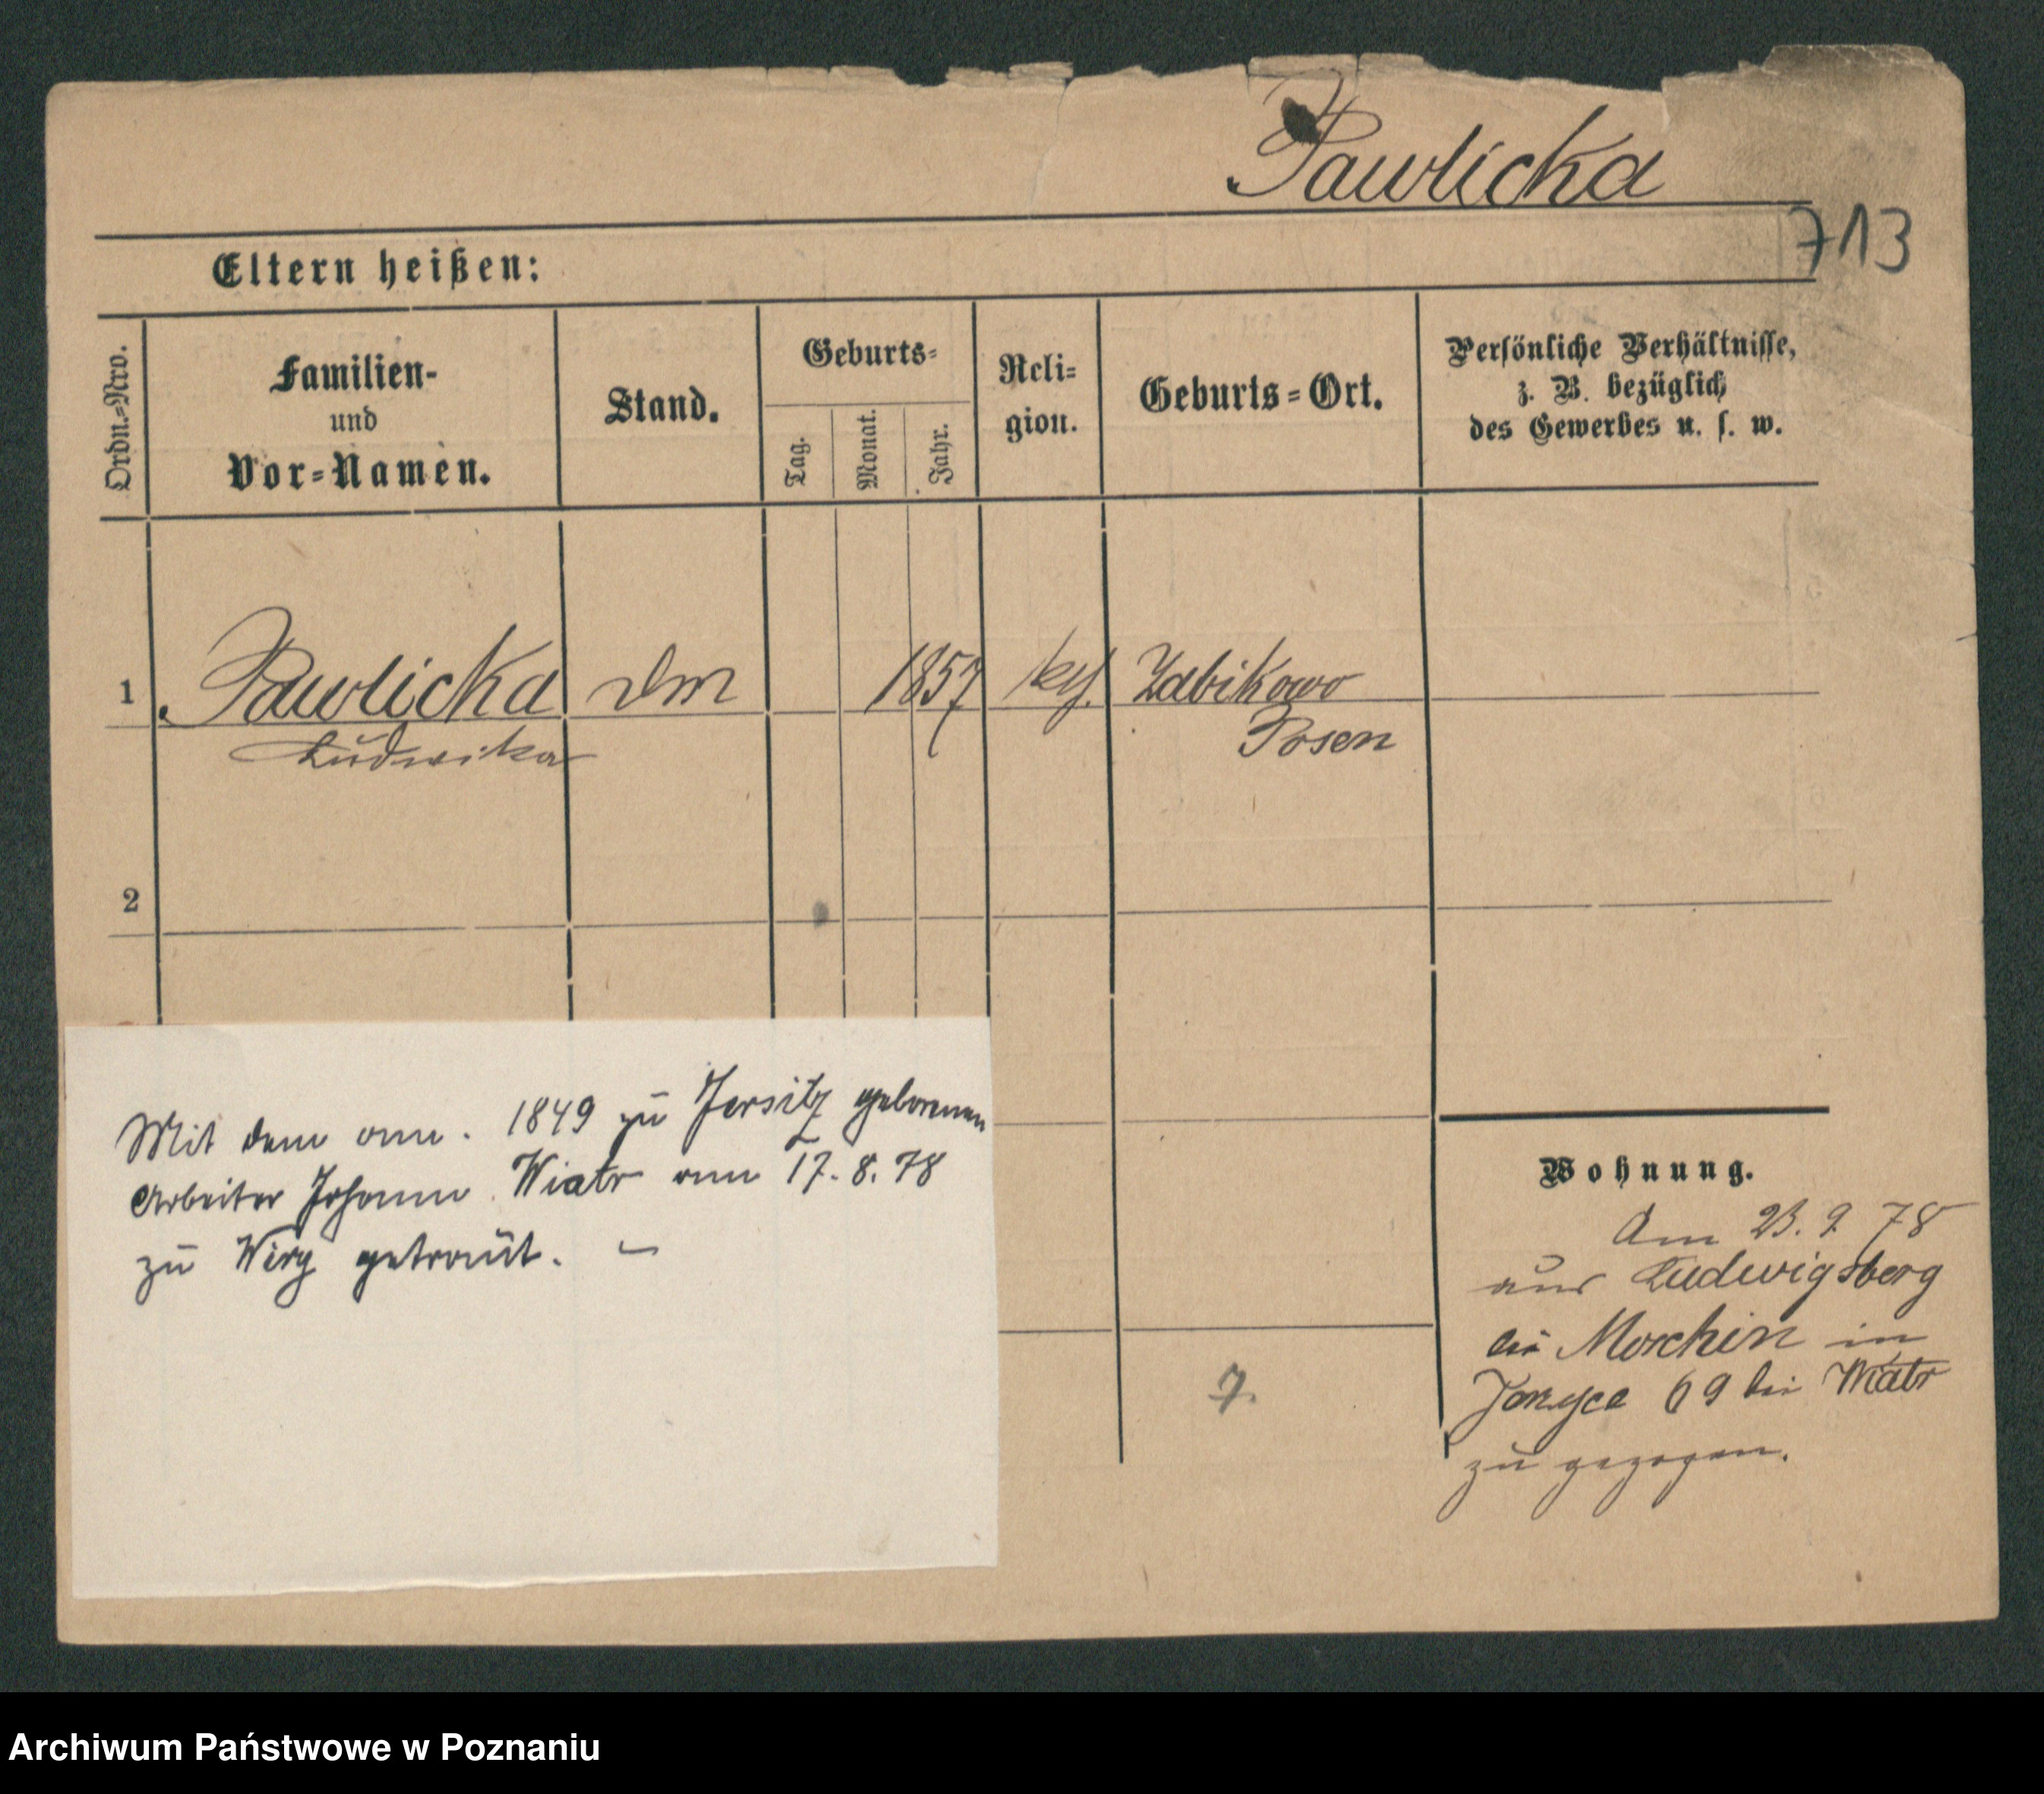 Pawlicka
713
Eltern heißen:
Ordn.=Nro.
Familien-
und
Vor=Namen.
Stand.
Geburts=
Tag.
Monat.
Jahr.
Reli=
gion.
Geburts=Ort.
Persönliche Verhältnisse,
z. B. bezüglich
des Gewerbes u. s. w.
1 Pawlicka 1857 Zabikowo
Ludwika
Posen
2
Mit dem am. 1849 zu Jersitz geborenen
Arbeiter Johann Wiatr am 17. 8. 78
zu Wiry getraut. –
7.
Wohnung.
Am 23. 9. 78
aus Ludwigsberg
bei Moschin in
69 bei Wiatr
zu gezogen.
Archiwum Państwowe w Poznaniu